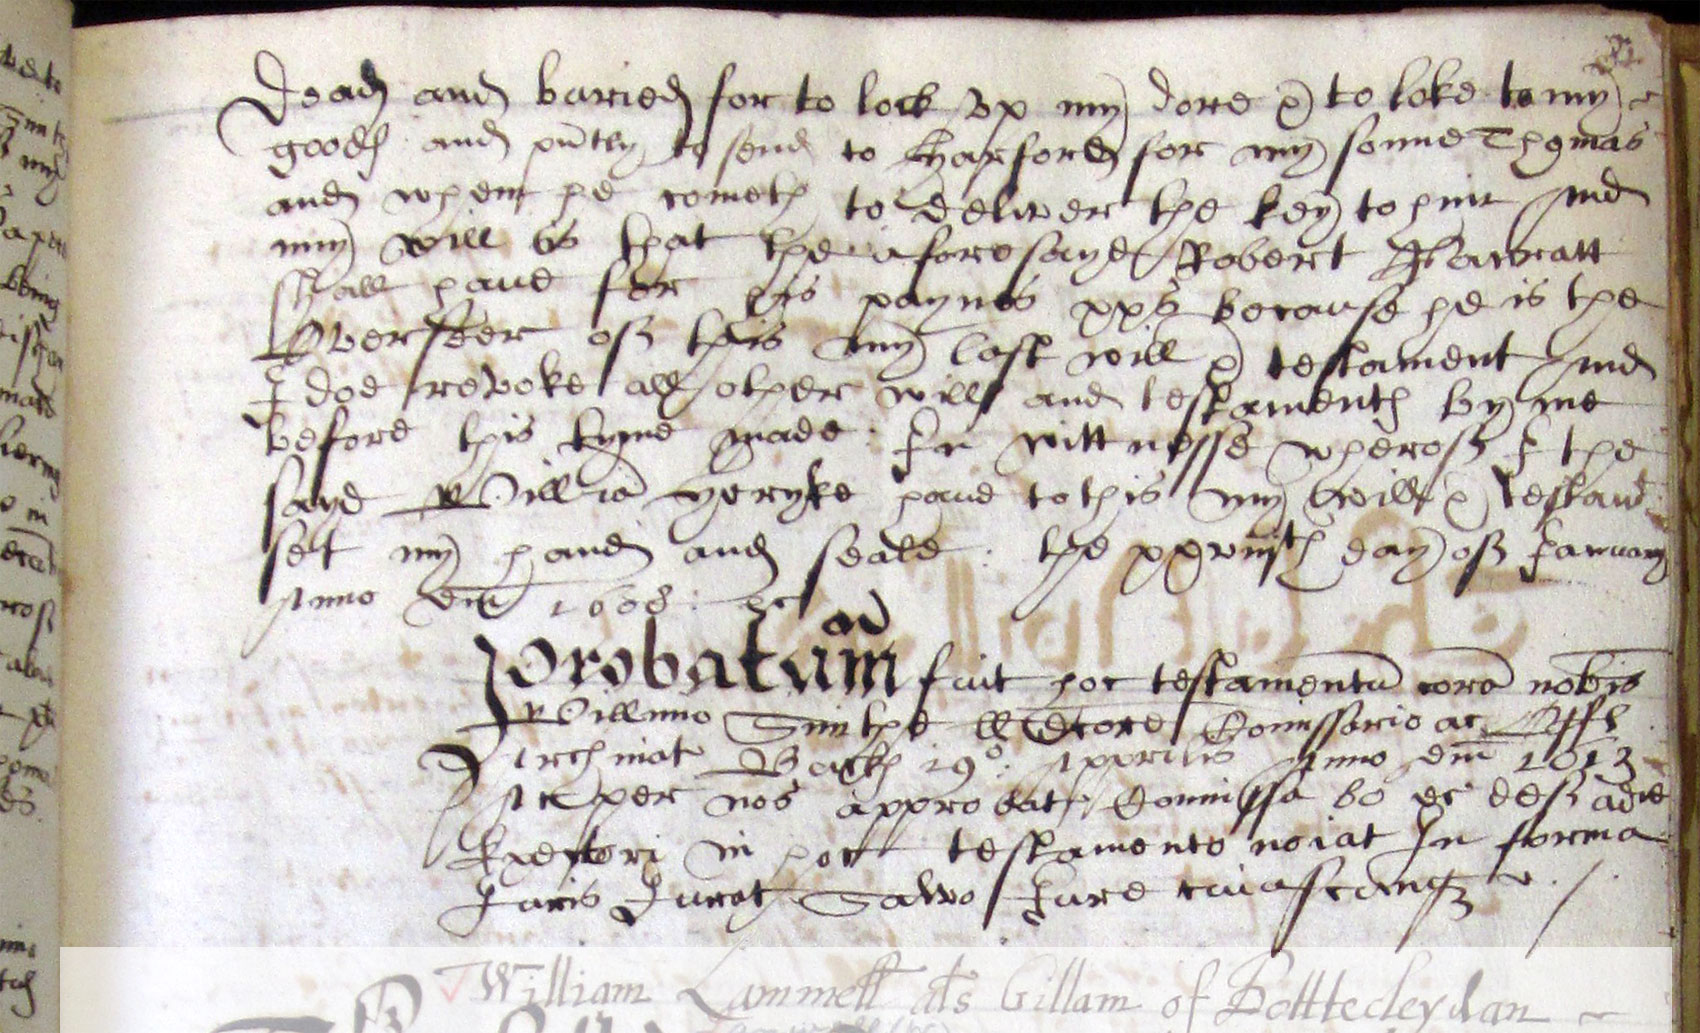 Dead and buried for to lock vp my dore & to loke to my
goods and pntly to send to Harford for my sonne Thomas
and when he cometh to deliver the key to him And
my will is that the aforesayd Robert
shall have for his paynes xxs because he is the
Overseer of this my last will & testament And
I doe revoke all other wills and testaments by me
before this tyme made: In wittnesse wherof I the
sayd Willia Heryke have to this my will & testam
set my hand and seale: the xxviijth day of January
Anno dm 1608: &c
Probatum fuit hoc testamentu cora nobis
Willimo Smithe ll Doctore Comissario ac Offl
Archinat Buck 19o: Apprilis Anno dm 1613
Ac per nos approbat Comissa bo &c def ad
Exectori in hoc testamento noiat In forma
Juris Jurat Salvo Jure cuiuscumqz
William Lammett als Gillam of Botttecleydan